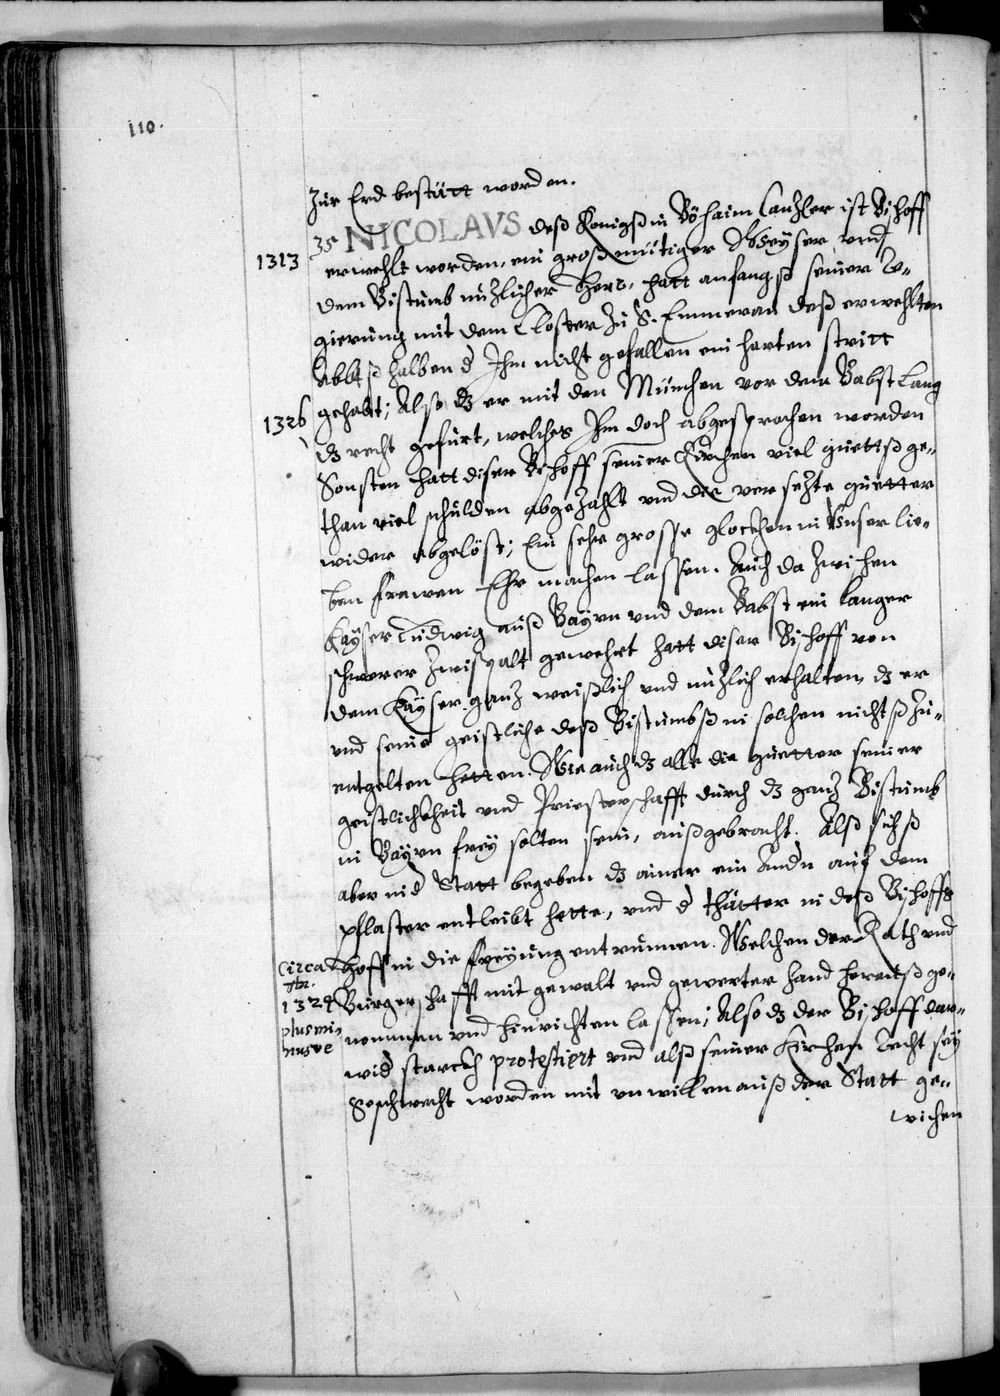 110.
Zur Erd bestütt worden.
35 NICOLAVS deß Königß in Böhaim Canzler ist Bischoff
1313
erwehlt worden, ein großmütiger Weyser vnd
dem Bistumb nuzlicher Herr, hatt anfangß seiner Re-
gierung mit dem Closter zu S. Emmeran deß erwehlten
Abbtß halben d Ihm nicht gefallen ein harten stritt
1326
gehabt; Also dz er mit den München vor dem Babst lang
dz recht gefürt, welches Ihm doch abgesprochen worden
Sonsten hatt diser Bischoff seiner Kirchen viel guettß ge-
than viel schulden abgezahlt vnd die versezte guetter
wider abgelöst; Ein sehr grosse glockhen in Vnser lie-
ben frawen Ehr machen lassen. Auch da zwischen
Kayser Ludwig auß Bayrn vnd dem Babst ein langer
schwerer zwispalt gewehrt hatt diser Bischoff von
dem Kayser ganz weißlich vnd nuzlich erhalten, dz er
vnd seine geistliche deß Bistumbß in solchen nichtß zu-
entgelten hetten. Wie auch dz alle die guetter seiner
geistlichkheit vnd Priesterschafft durch dz ganz Bistumb
in Bayrn frey solten sein, außgebracht. Alß sichß
aber in d Statt begeben dz ainer ein Andn auf dem
pflaster entleibt hette, vnd d thätter in deß Bischoffs
hoff in die freyung entrunnen. Welchen der Rath vnd
Circa
Ao.
1324
plus mi-
nusve
Burgerschafft mit gewalt vnd gewerter hand herauß ge-
nommen vnd hinrichten lassen; Also dz der Bischoff dar-
wid starckh protestiert vnd alß seiner Kirchen Recht sey
geschwecht worden mit vnwillen auß der Statt ge-
wichen